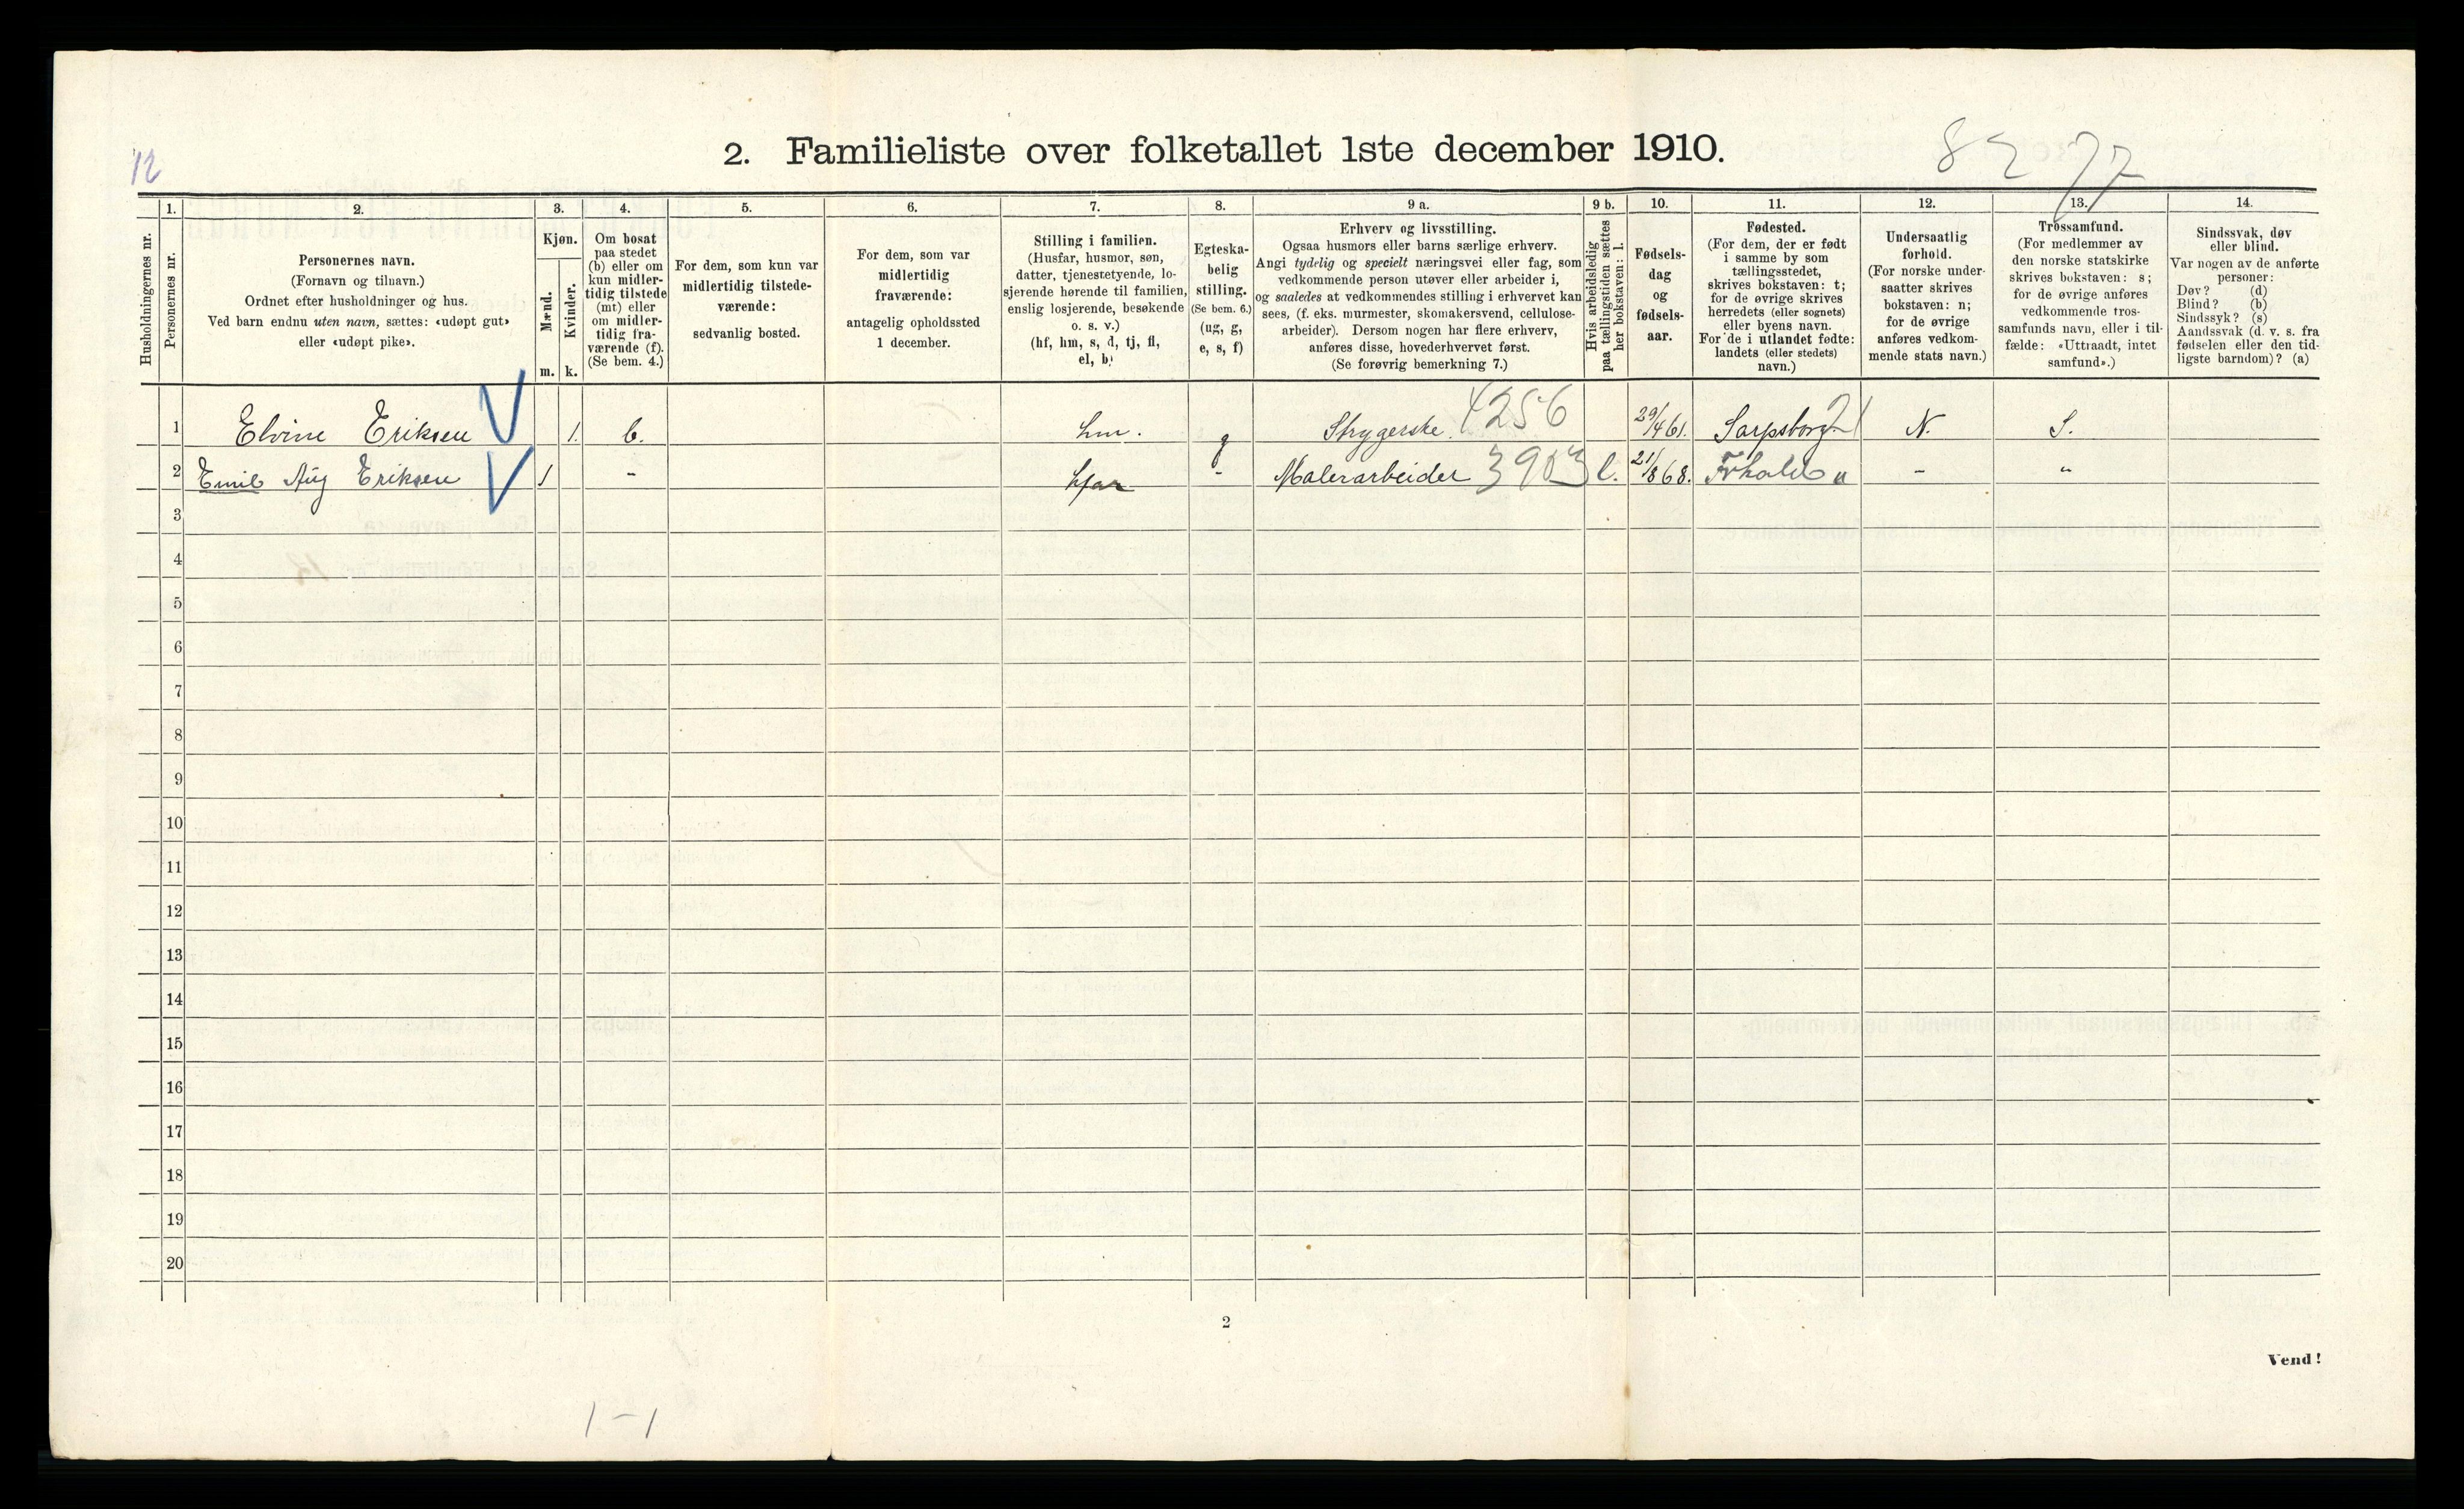 12
2. Familieliste over folketallet 1ste december 1910.
82 77
1. 2. 3. 4. 5. 6. 7. 8. 9 a. 9 b. 10. 11. 12. 13. 14.
Husholdningernes nr.
Personernes nr.
Personernes navn.
(Fornavn og tilnavn.)
Ordnet efter husholdninger og hus.
Ved barn endnu uten navn, sættes: «udøpt gut»
eller «udøpt pike».
Kjøn.
Mænd.
Kvinder.
m. k.
Om bosat
paa stedet
(b) eller om
kun midler-
tidig tilstede
(mt) eller
om midler-
tidig fra-
værende (f).
(Se bem. 4.)
For dem, som kun var
midlertidig tilstede-
værende:
sedvanlig bosted.
For dem, som var
midlertidig
fraværende:
antagelig opholdssted
1 december.
Stilling i familien.
(Husfar, husmor, søn,
datter, tjenestetyende, lo-
sjerende hørende til familien,
enslig losjerende, besøkende
o. s. v.)
(hf, hm, s, d, tj, fl,
el, b)
Egteska-
belig
stilling.
(Se bem. 6.)
(ug, g,
e, s, f)
Erhverv og livsstilling.
Ogsaa husmors eller barns særlige erhverv.
Angi tydelig og specielt næringsvei eller fag, som
vedkommende person utøver eller arbeider i,
og saaledes at vedkommendes stilling i erhvervet kan
sees, (f. eks. murmester, skomakersvend, cellulose-
arbeider). Dersom nogen har flere erhverv,
anføres disse, hovederhvervet først.
(Se forøvrig bemerkning 7.)
Hvis arbeidsledig
paa tællingstiden sættes
her bokstaven: l.
Fødsels-
dag
og
fødsels-
aar.
Fødested.
(For dem, der er født
i samme by som
tællingsstedet,
skrives bokstaven: t;
for de øvrige skrives
herredets (eller sognets)
eller byens navn.
For de i utlandet fødte:
landets (eller stedets)
navn.)
Undersaatlig
forhold.
(For norske under-
saatter skrives
bokstaven: n;
for de øvrige
anføres vedkom-
mende stats navn.)
Trossamfund.
(For medlemmer av
den norske statskirke
skrives bokstaven: s;
for de øvrige anføres
vedkommende tros-
samfunds navn, eller i til-
fælde: «Uttraadt, intet
samfund».)
Sindssvak, døv
eller blind.
Var nogen av de anførte
personer:
Døv? (d)
Blind? (b)
Sindssyk? (s)
Aandssvak (d. v. s. fra
fødselen eller den tid-
ligste barndom)? (a)
1 Elvine Eriksen V 1. b. hm. g Strygerske 4256 29/4 61. Sarpsborg 21 N. S.
2 Emil Aug Eriksen V 1 - hfar - Malerarbeider 3903 l. 21/8 68. Frhald " - "
3
4
5
6
7
8
9
10
11
12
13
14
15
16
17
18
19
20
2
Vend!
1-1